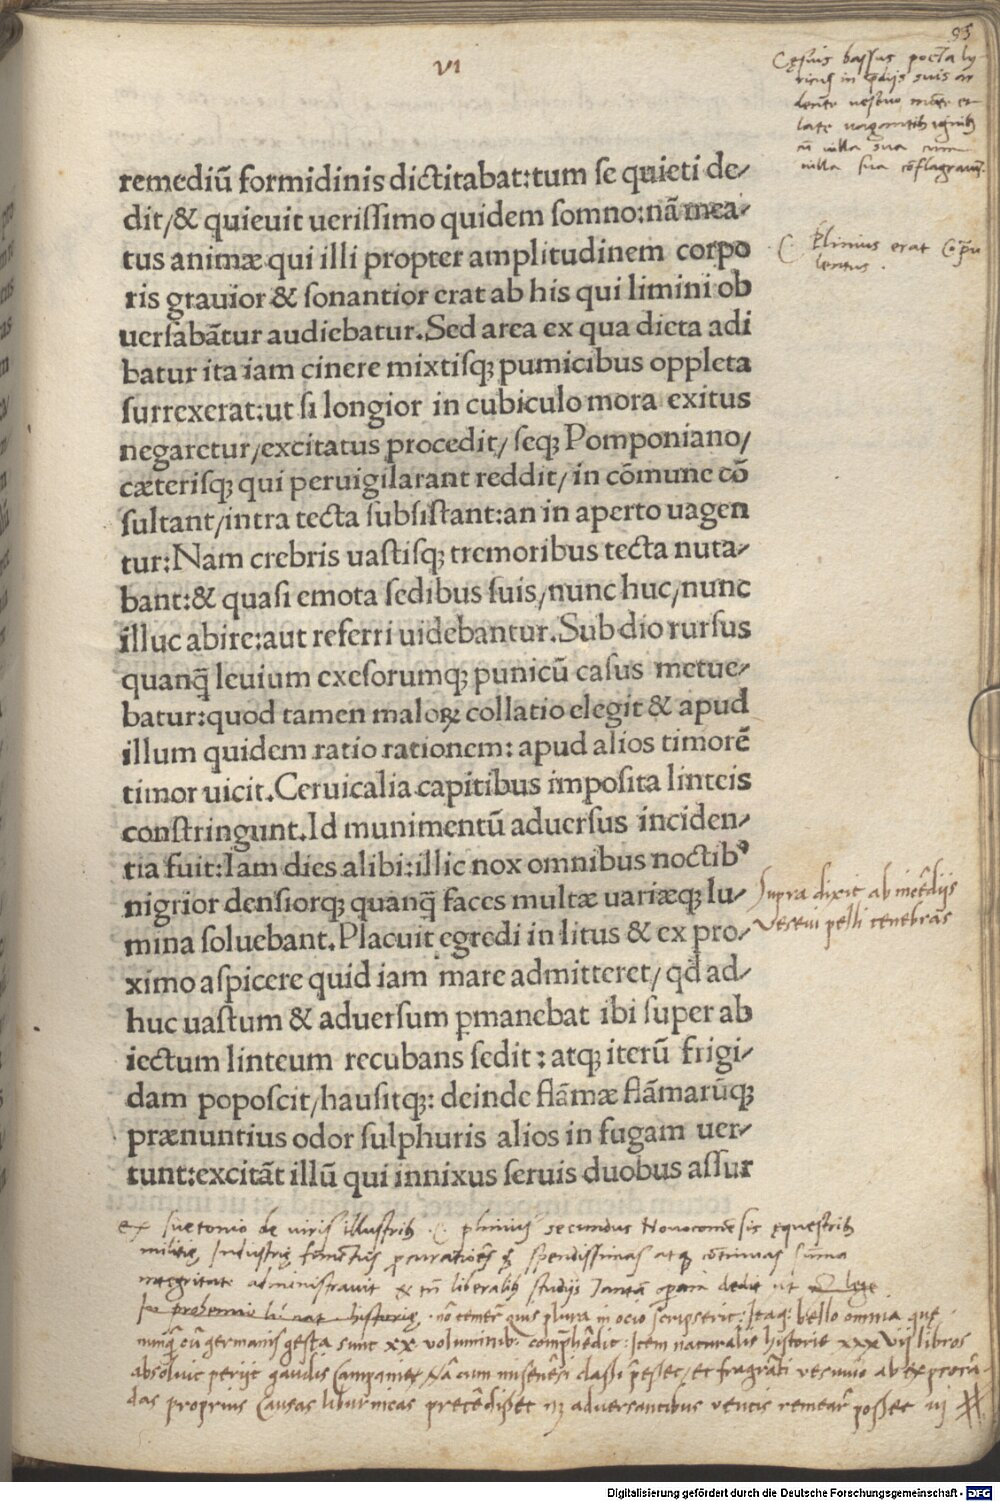 95
VI
Cęsius bassus poeta ly
ricus in p̄dijs suis ar
dente uesuuo
late uagantib ignib
villa sua cum
villa sua cōflagrauit.
remediū formidinis dictitabat:tum ſe quieti de⸗
dit/& quieuit ueriſſimo quidem ſomno:nā mea⸗
tus animæ qui illi propter amplitudinem corpo
ris grauior & ſonantior erat ab his qui limini ob
uerſabātur audiebatur.Sed area ex qua dieta adi
batur ita iam cinere mixtiſq; pumicibus oppleta
ſurrexerat:ut ſi longior in cubiculo mora exitus
negaretur/excitatus procedit/ ſeq; Pomponiano/
cæteriſq; qui peruigilarant reddit/in cōmune cō
ſultant/intra tecta ſubſiſtant:an in aperto uagen
tur:Nam crebris uaſtiſq; tremoribus tecta nuta⸗
bant:& quaſi emota ſedibus ſuis/nunc huc/nunc
illuc abire:aut referri uidebantur.Sub dio rurſus
quanq̄ leuium exeſorumq; punicū caſus metue⸗
batur:quod tamen maloꝝ collatio elegit & apud
illum quidem ratio rationem: apud alios timorē
timor uicit.Ceruicalia capitibus impoſita linteis
conſtringunt.Id munimentū aduerſus inciden⸗
tia fuit:Iam dies alibi:illic nox omnibus noctibꝰ
nigrior denſiorq; quanq̄ faces multæ uariæq; lu⸗
mina ſoluebant.Placuit egredi in litus & ex pro⸗
ximo aſpicere quid iam mare admitteret/ qd ad⸗
huc uaſtum & aduerſum ꝑmanebat ibi ſuper ab
iectum linteum recubans ſedit : atq; iterū frigi⸗
dam popoſcit/hauſitq;: deinde flāmæ flāmarūq;
prænuntius odor ſulphuris alios in fugam uer⸗
tunt:excitāt illū qui innixus ſeruis duobus aſſur
Plinius erat Corpu
lentus.
Supra dixit ab incēdijs
Vesevi pelli tenebras
ex suetonio de viris illustrib. C plinius secundus Novocomēsis ęquestrib
militię Industrię functus procurationes q spendissimas atq continuas summa
integritate administravit & tn̄ liberalib studijs tantā operam dedit ut
In prohemio li nat historię . nō temere quis plura in ocio scripserit: Itaq: bello omnia que
nunq̄ cū germanis gesta sunt xx voluminib. comprehēdit: Item naturalis historie xxxvij libros
absoluit perijt gaudis Campanie, Nā cum misenēsi classi pēsset, et fragrāti vesuuio ab explorā⸗
das proprius Causas liburnicas pretēdisset nq aduersantibus ventis remeare posset vi
Digitalisierung gefördert durch die Deutsche Forschungsgemeinschaft - DFG